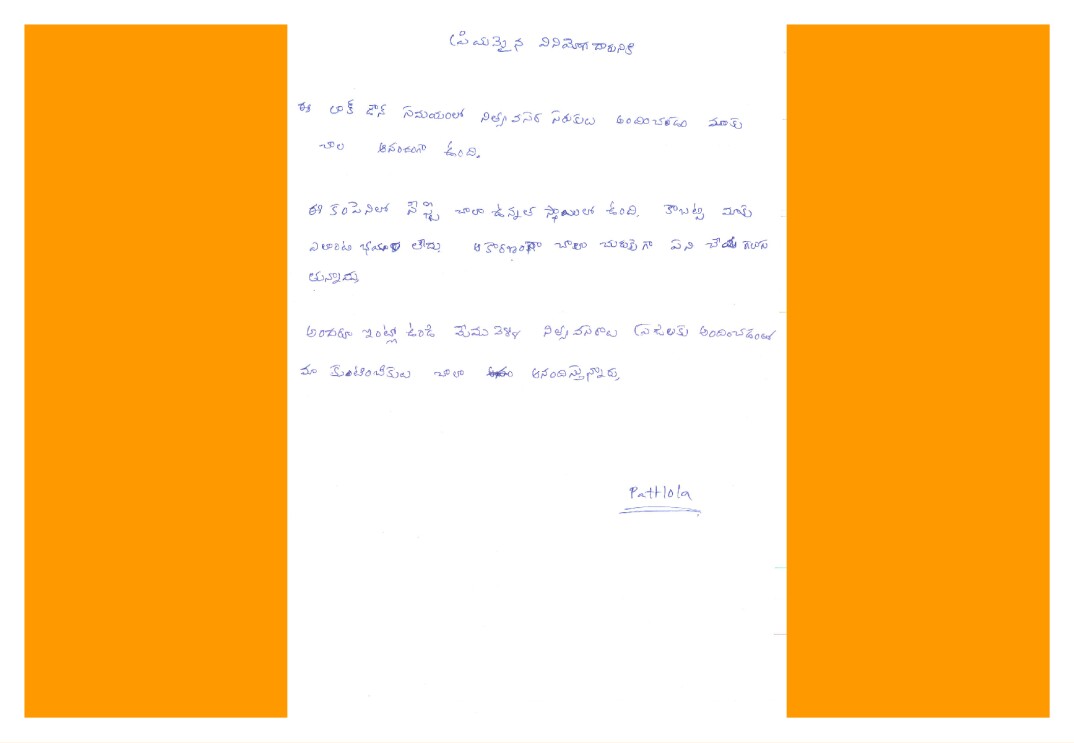 ప్రియమైన వినియోగదారునికి
ఈ లాక్ డౌన్ సమయంలో నిత్యవసర సరుకులు అందించడం మాకు
చాల ఆనందంగా ఉంది.
ఈ కంపెనిలో సేఫ్టి చాలా ఉన్నత స్థాయిలో ఉంది. కాబట్టి మాకు
ఎలాంటి భయం లేదు. ఆకారణంగా చాలా చురుకైగా పని చేయ గలుగు
తున్నాము
అందరూ ఇంట్లో ఉండి మేము వెళ్ళి నిత్యవసరాలు ప్రజలకు అందించడంలో
మా కుంటింబికులు చాలా ఆనందిస్తున్నారు
Pathlola